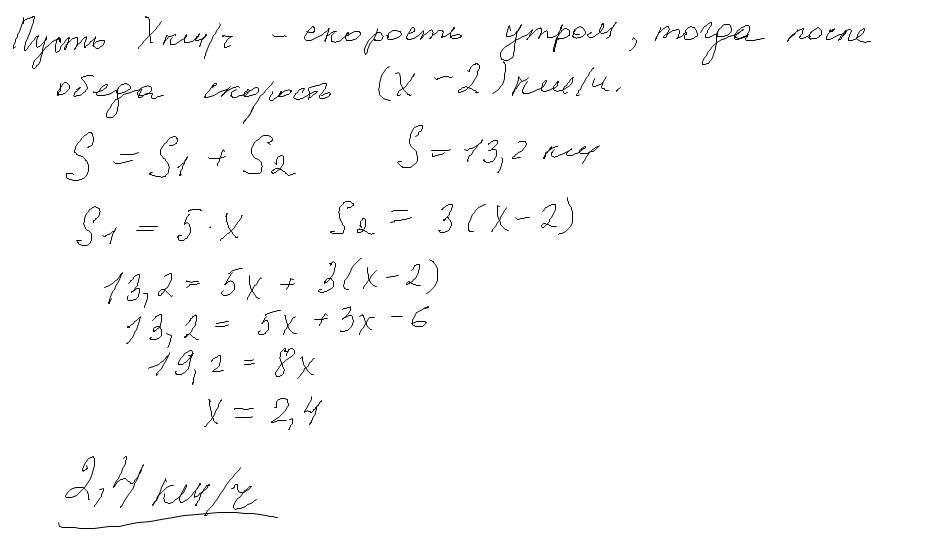 Пусть X км/ч - скорость утром, тогда после
обеда скорость (x - 2) км/ч.
S = S1 + S2 S = 13,2 км
S1 = 5 · x S2 = 3(x - 2)
13,2 = 5x + 3(x - 2)
13,2 = 5x + 3x - 6
19,2 = 8x
x = 2,4
2,4 км/ч